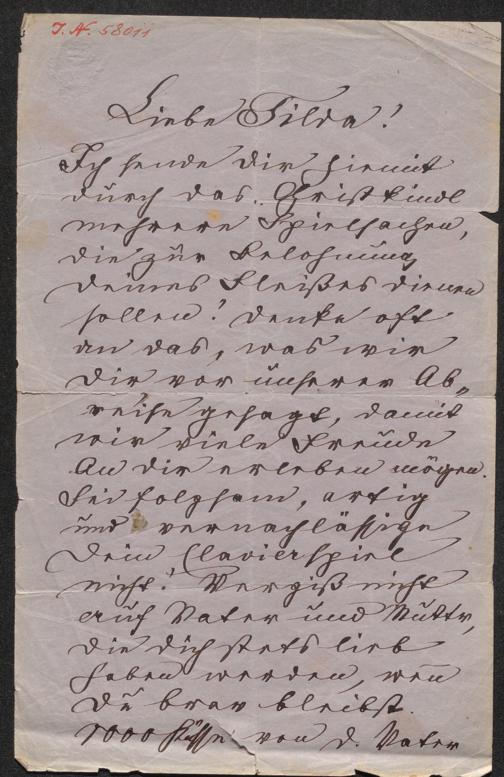 J. N. 58011
Liebe Tilda!
Ich sende dir hiemit
durch das Christkindl
mehrere Spielsachen,
die zur Belohnung
deines Fleißes dienen
sollen! denke oft
an das, was wir
dir vor unserer Ab„
reise gesagt, damit
wir viele Freude
An dir erleben mögen.
Sei folgsam, artig
und vernachlässige
dein Clavierspiel
nicht! Vergiß nicht
auf Vater und Muttr,
die dich stets lieb
haben werden, weñ
du brav bleibst.
1000 Küsse von d. Vater